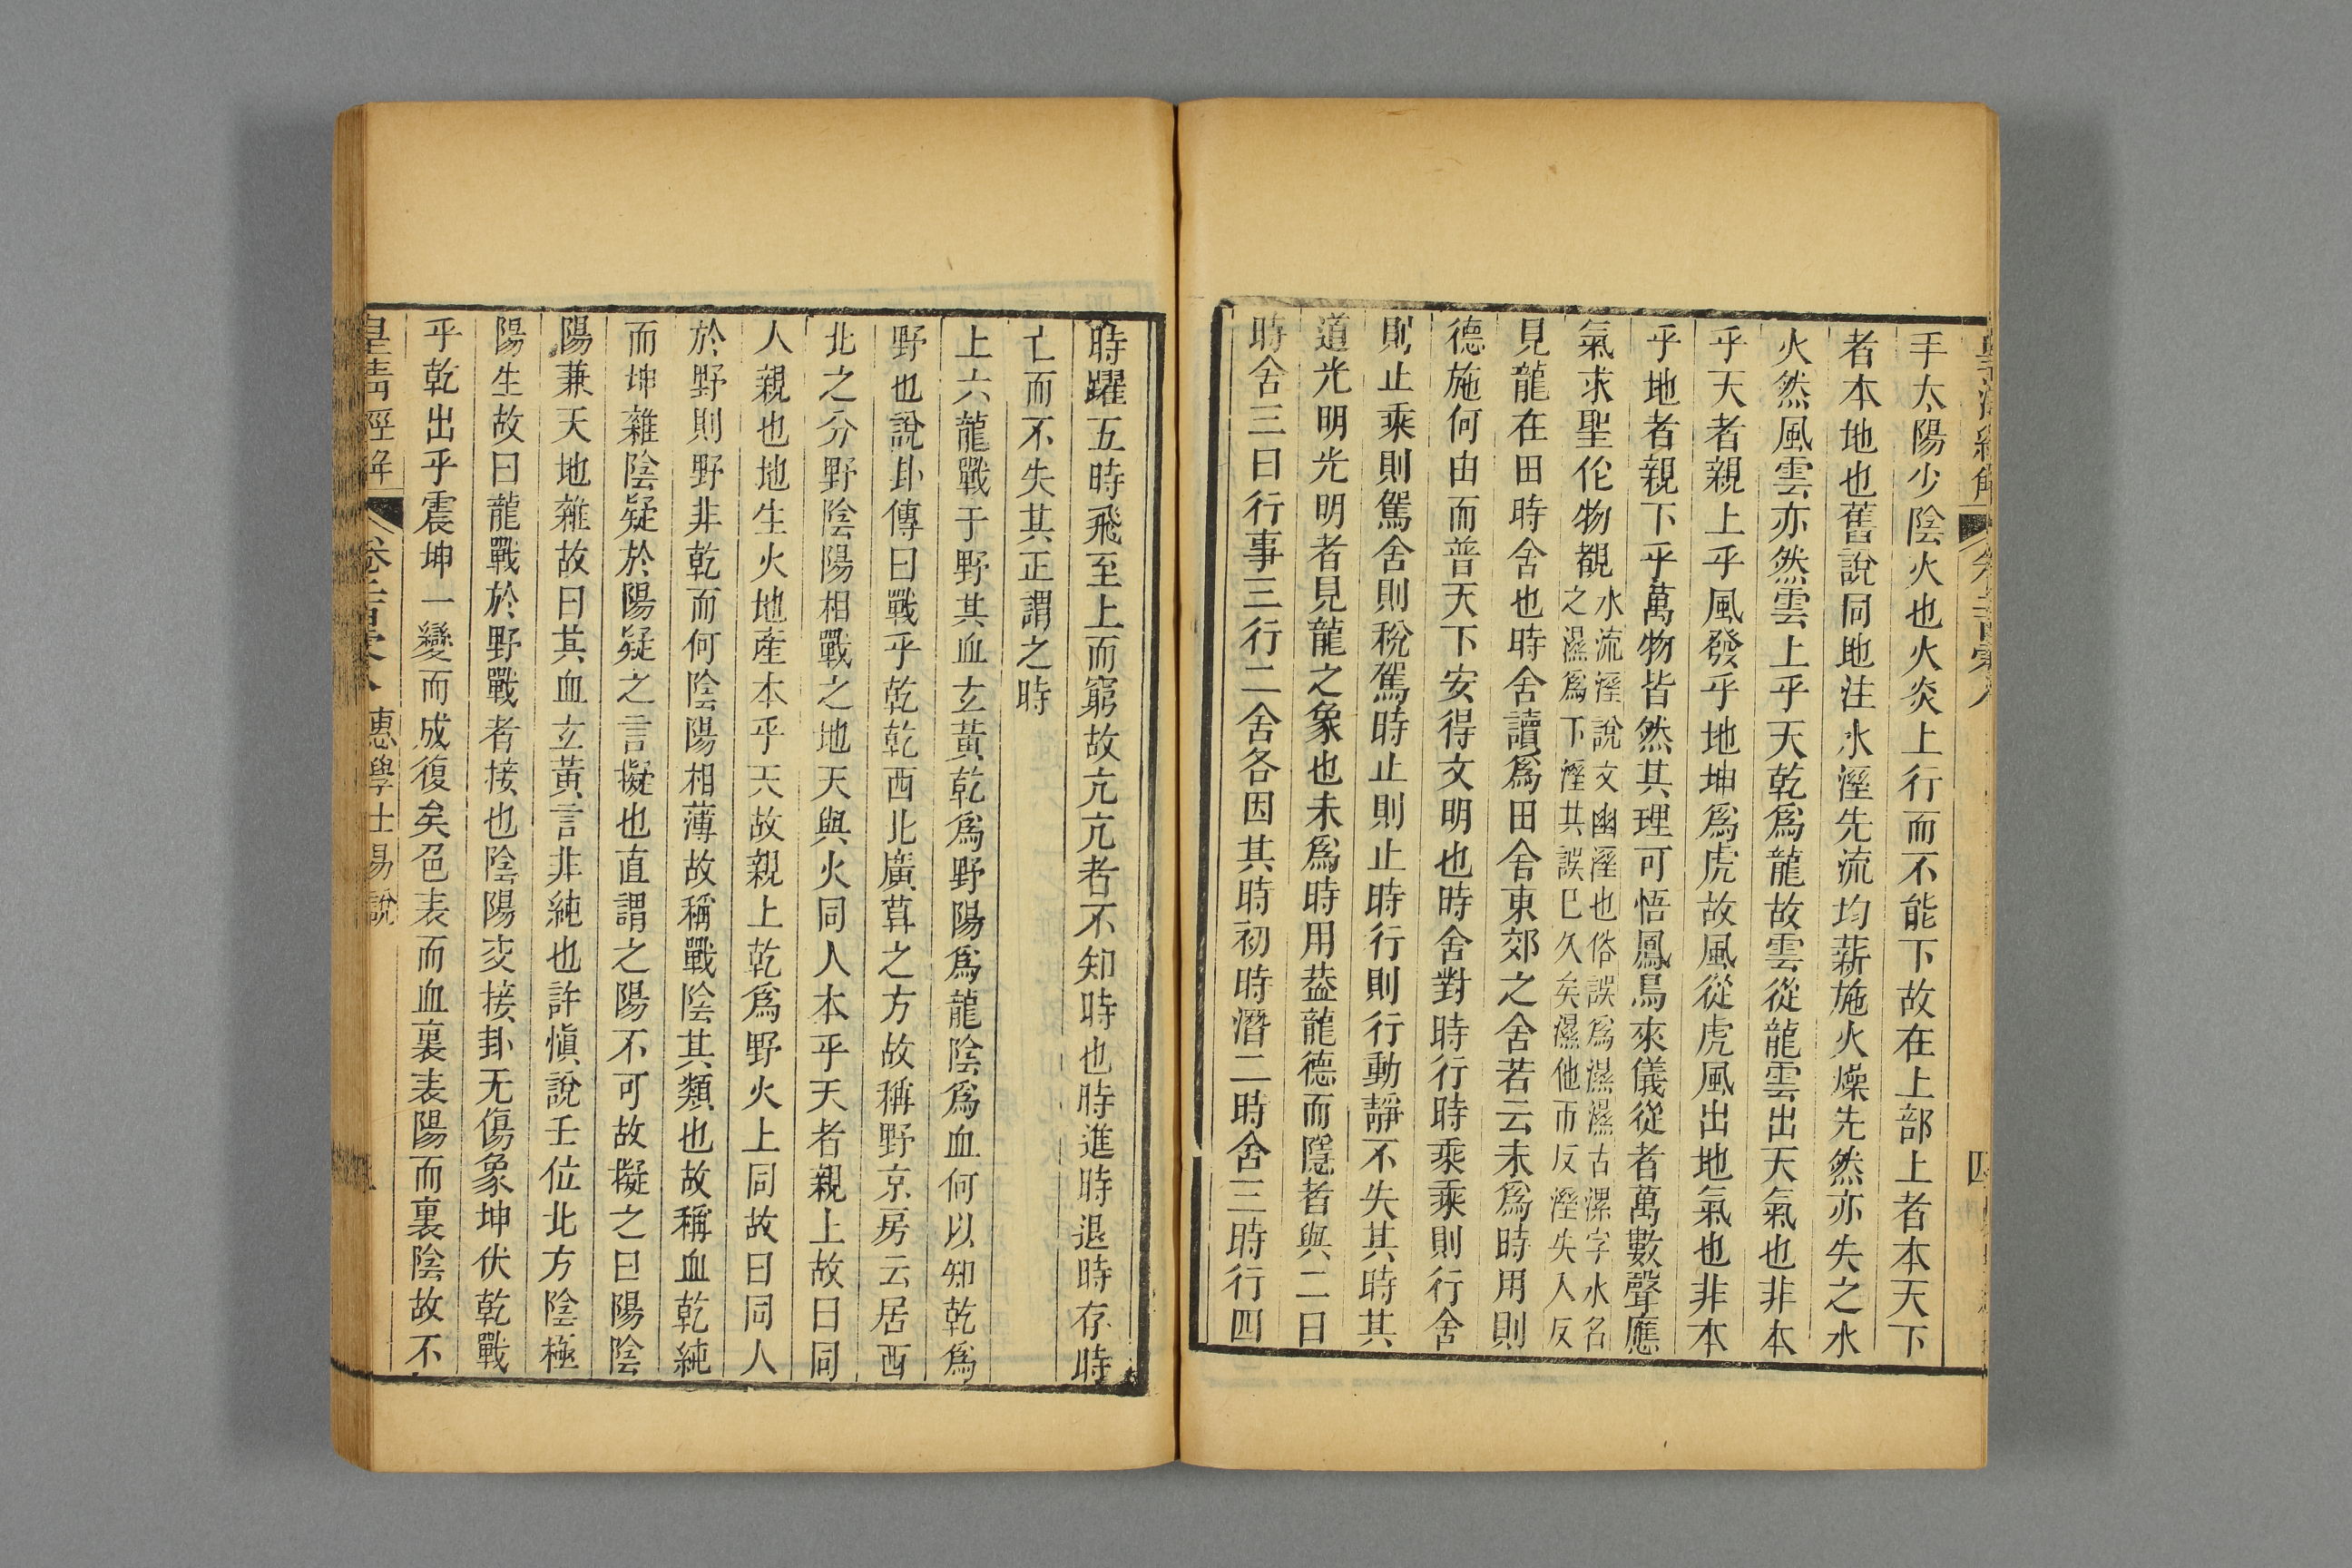 手太陽少陰火也火炎上行而不能下故在上部上者本天下
者本地也舊說同地注水溼先流均薪施火燥先然亦失之水
火然風雲亦然雲上乎天乾爲龍故雲從龍雲出天氣也非本
乎天者親上乎風發乎地坤爲虎故風從虎風出地氣也非本
乎地者親下乎萬物皆然其理可悟鳳鳥來儀從者萬數聲應
氣求聖作物覩
水流溼說文幽溼也俗誤爲濕濕古漯字水名
之濕爲下溼其誤巳久矣濕他帀反溼失入反
見龍在田時舍也時舍讀爲田舍東郊之舍若云未爲時用則
德施何由而普天下安得文明也時舍對時行時乘乘則行舍
則止乘則駕舍則稅駕時止則止時行則行動靜不失其時其
道光明光明者見龍之象也未爲時用葢龍德而隱者與二曰
時舍三曰行事三行二舍各因其時初時潛二時舍三時行四
時躍五時飛至上而窮故亢亢者不知時也時進時退時存時
亡而不失其正謂之時
上六龍戰于野其血玄黃乾爲野陽爲龍陰爲血何以知乾爲
野也說卦傳曰戰乎乾乾西北廣莫之方故稱野京房云居西
北之分野陰陽相戰之地天與火同人本乎天者親上故曰同
人親也地生火地產本乎天故親上乾爲野火上同故曰同人
於野則野非乾而何陰陽相薄故稱戰陰其類也故稱血乾純
而坤雜陰疑於陽疑之言擬也直謂之陽不可故擬之曰陽陰
陽兼天地雜故曰其血玄黃言非純也許愼說壬位北方陰極
陽生故曰龍戰於野戰者接也陰陽交接卦无傷象坤伏乾戰
乎乾出乎震坤一變而成復矣色表而血裏表陽而裏陰故不
皇淸經解 惠學士易說